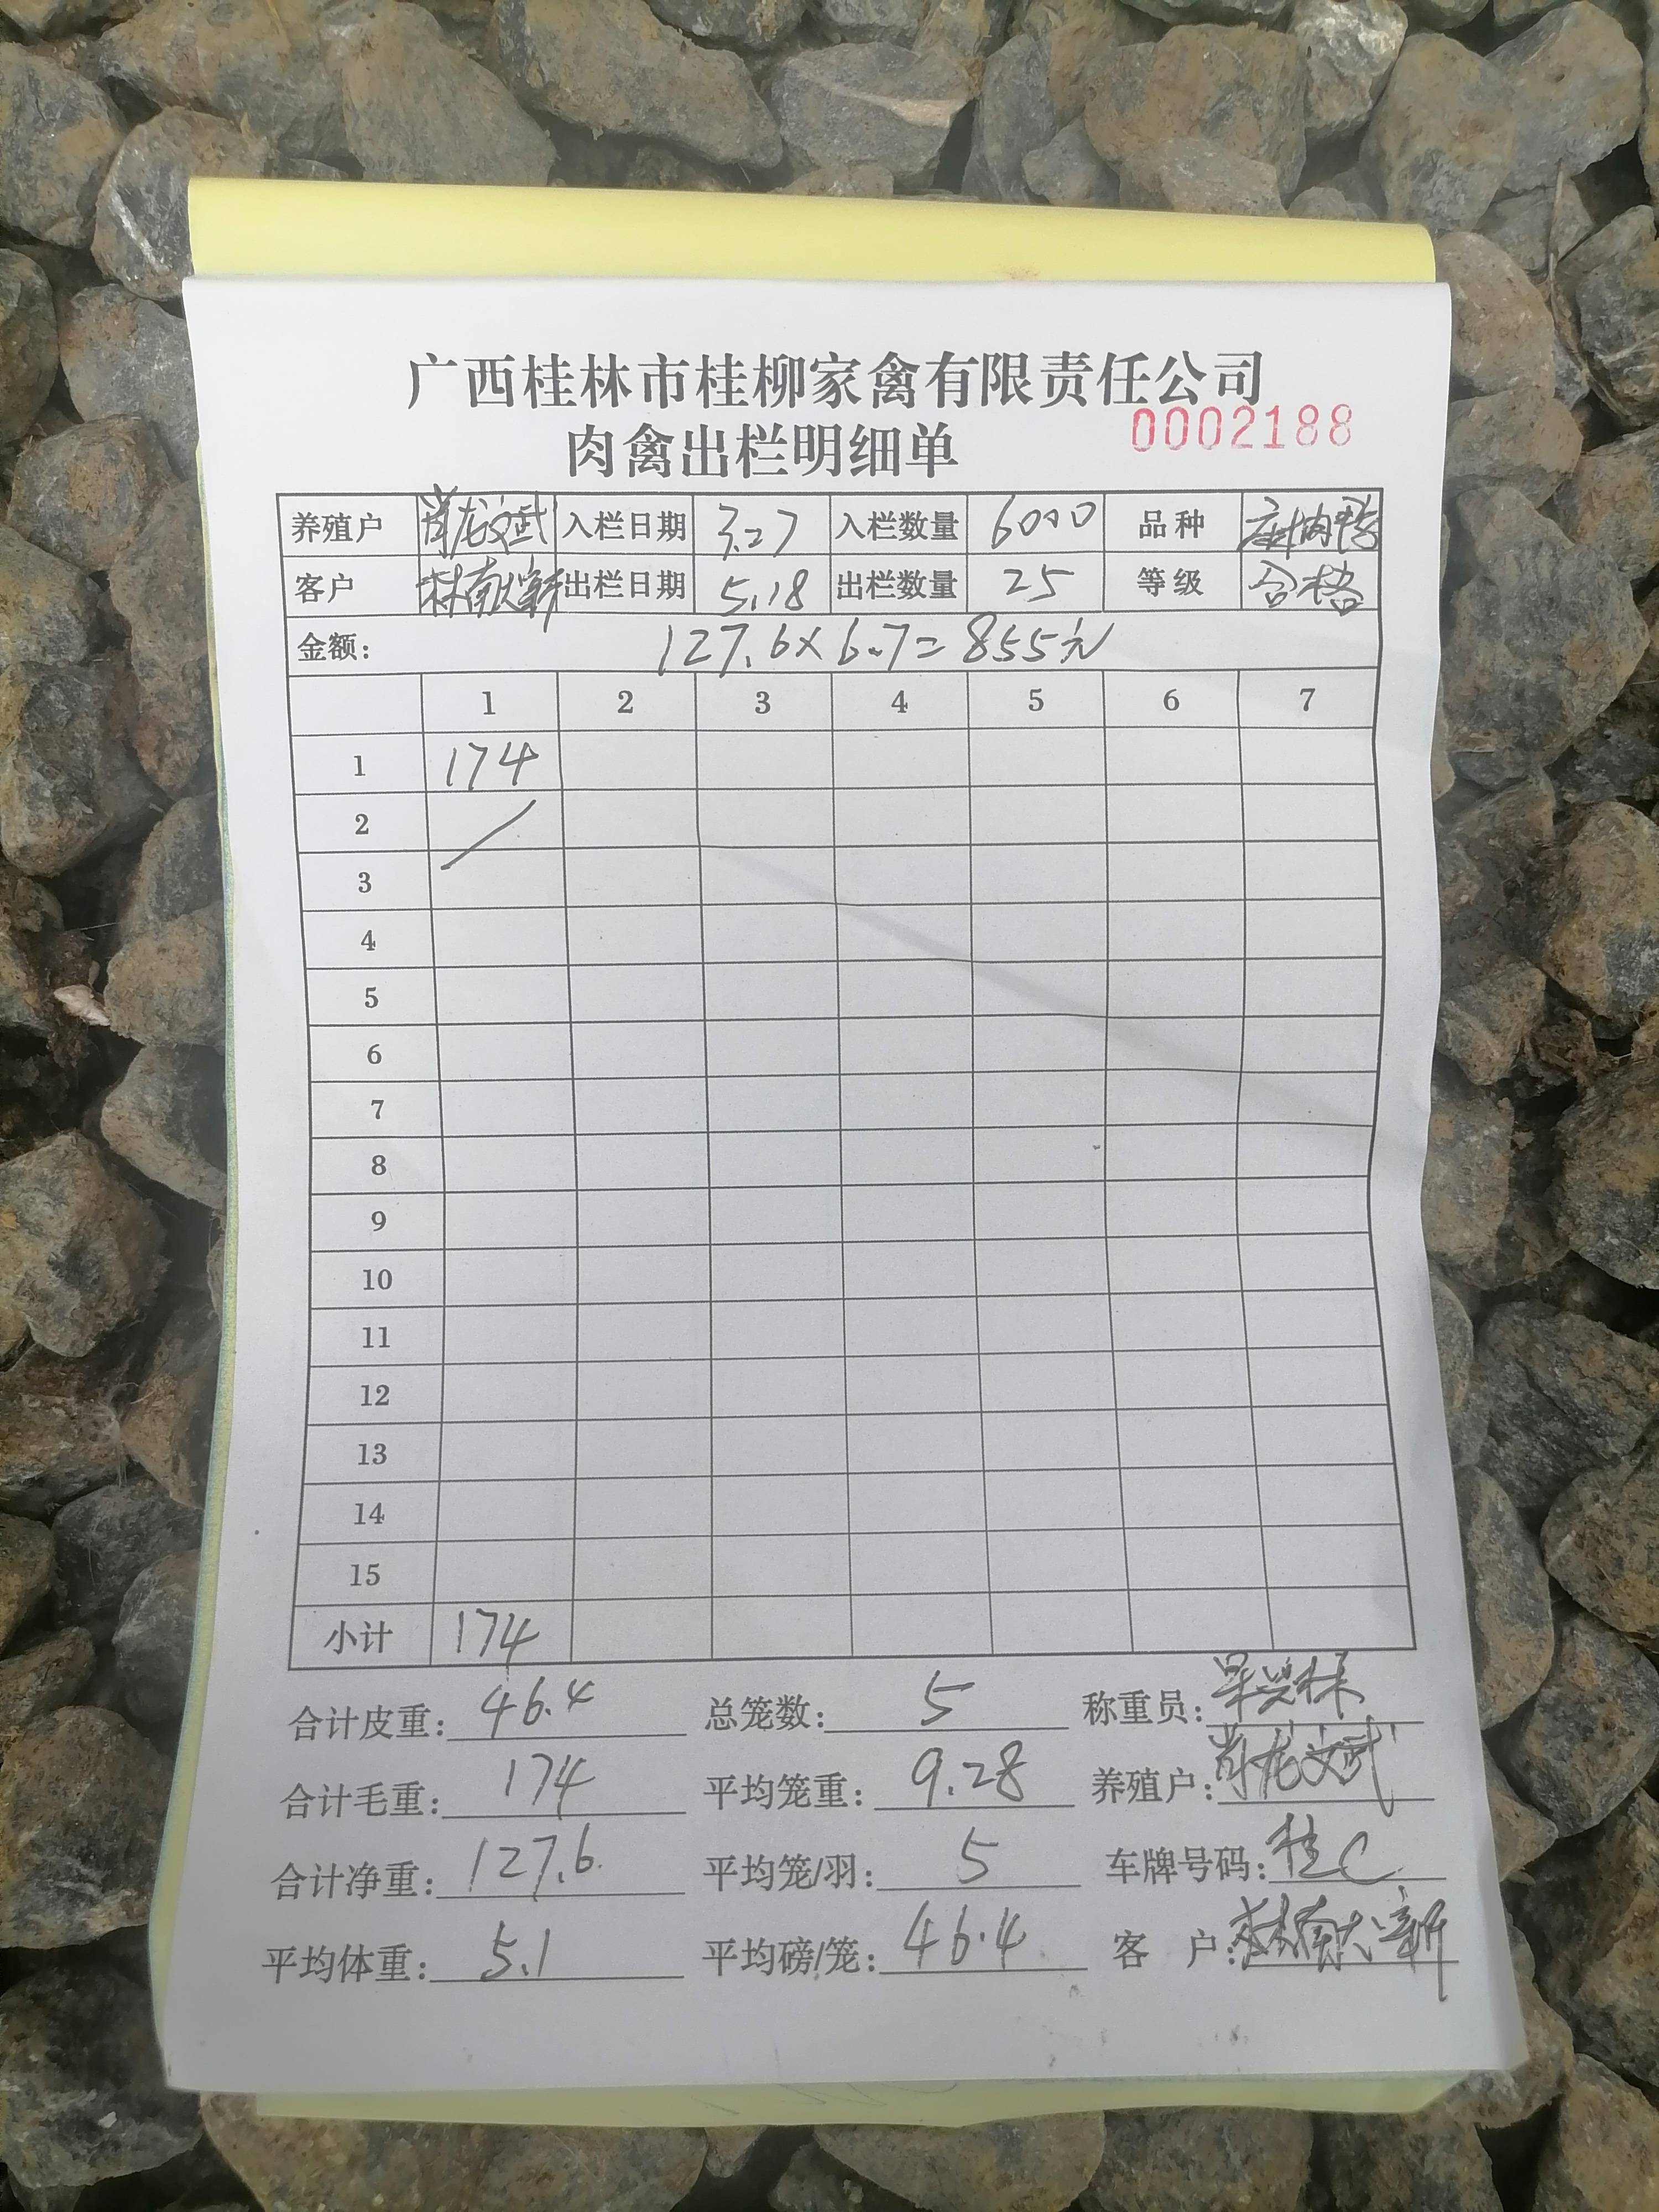 广西桂林市桂柳家禽有限责任公司
肉禽出栏明细单 0002188
养殖户 龙文武 入栏日期 3.27 入栏数量 6000 品种 肉鸭
客户 林南大新 出栏日期 5.18 出栏数量 25 等级 合格
金额: 127.6×6.7=855元
1 2 3 4 5 6 7
1 174
2
3
4
5
6
7
8
9
10
11
12
13
14
15
小计 174
合计皮重: 46.4 总笼数: 5 称重员:
合计毛重: 174 平均笼重: 9.28 养殖户: 龙文武
合计净重: 127.6 平均笼/羽: 5 车牌号码: 桂C
平均体重: 5.1 平均磅/笼: 46.4 客 户: 林南大新